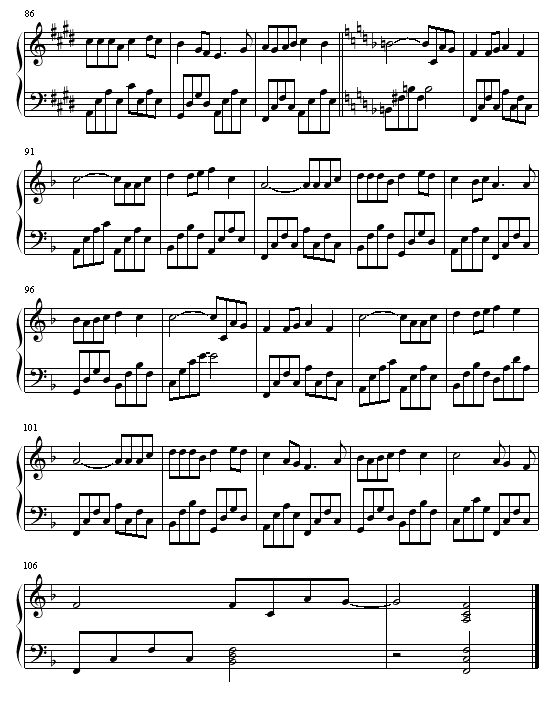 86
91
96
101
106